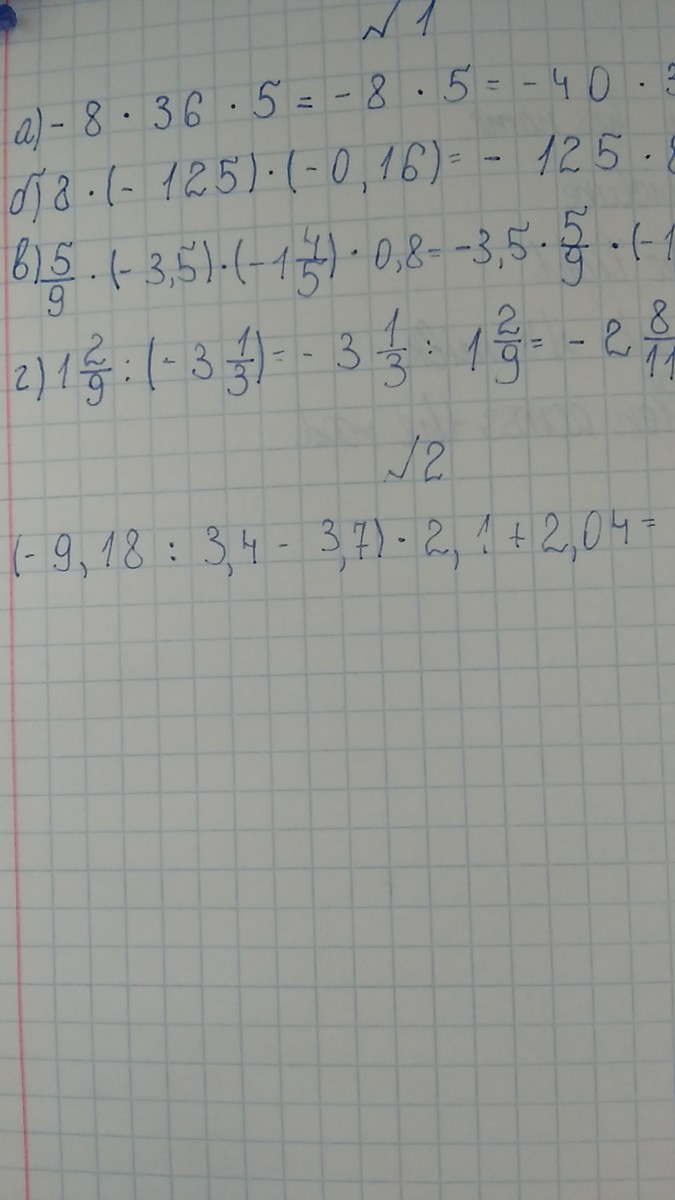 №1
а) - 8 · 36 · 5 = - 8 · 5 = - 40 · 3
б) 8 · (- 125) · (- 0,16) = - 125 · 8
в) 5/9 · (- 3,5) · (- 1 4/5) · 0,8 = -3,5 · 5/9 · (-1
г) 1 2/9 : (- 3 1/3) = - 3 1/3 : 1 2/9 = - 2 8/11
№2
(- 9,18 : 3,4 - 3,7) · 2,1 + 2,04 =